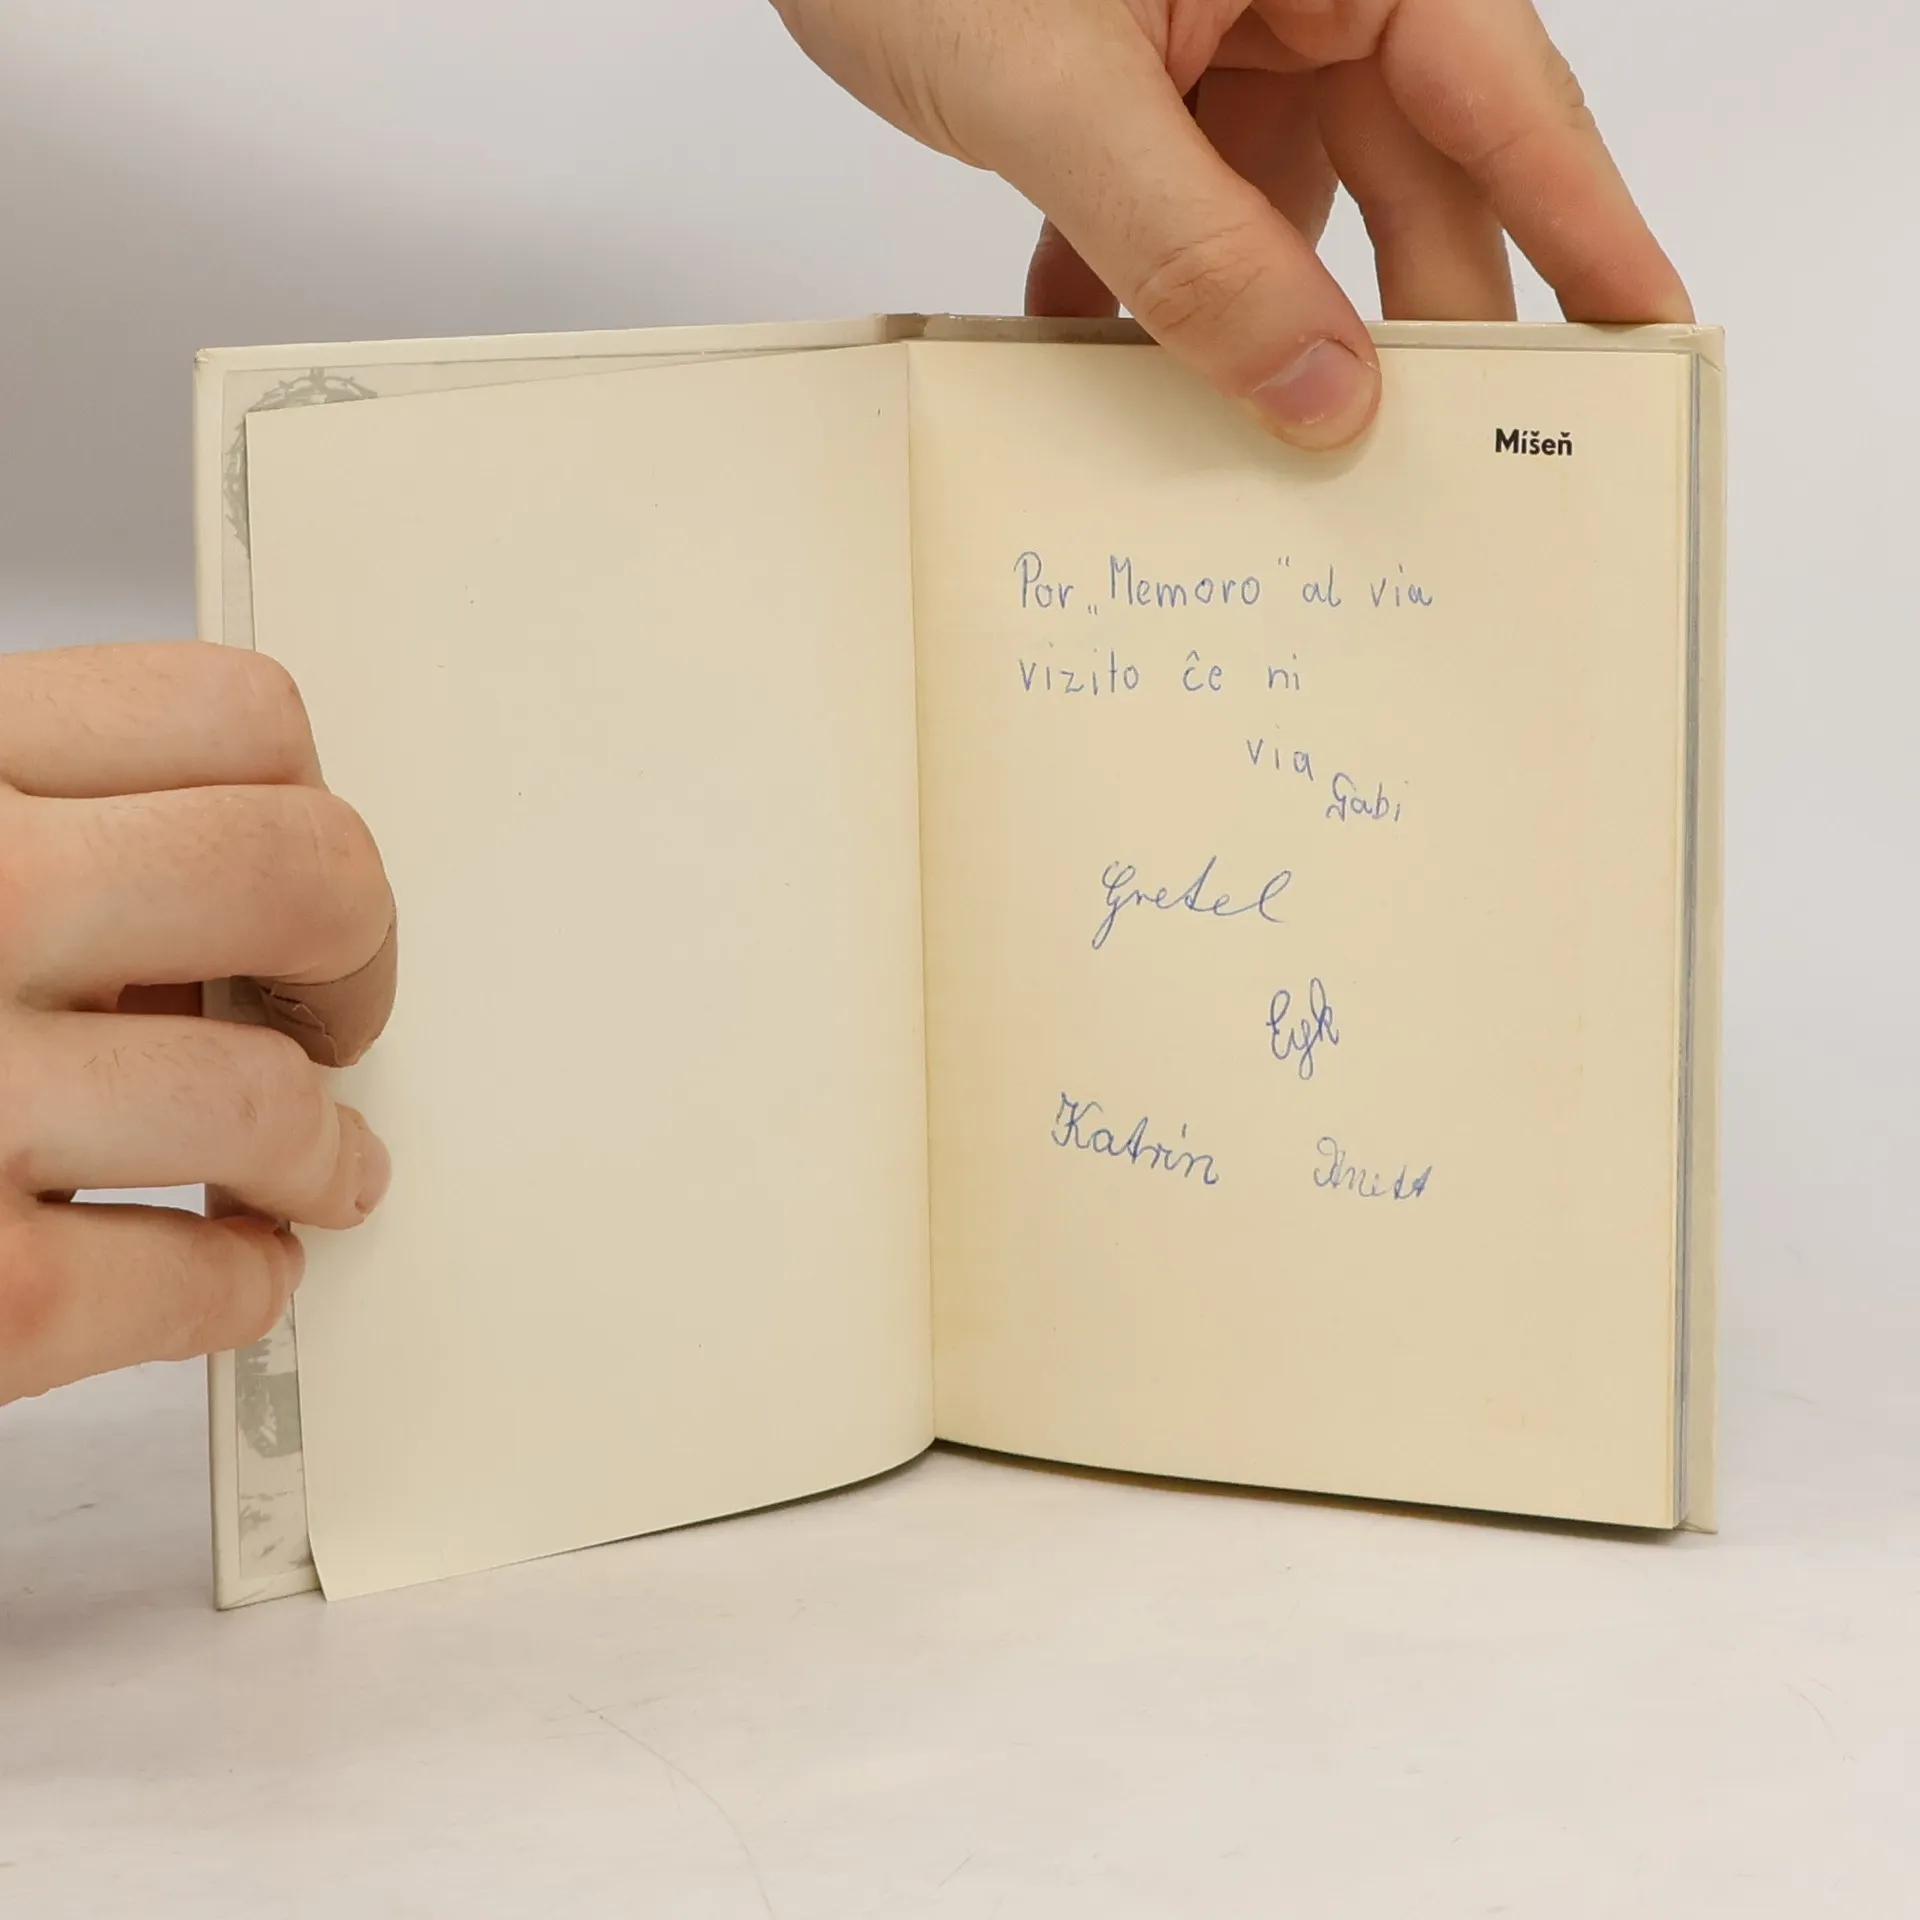 Míšeň
Por „Memoro“ al via
vizito ĉe ni
via
Gabi
Gretel
Eyk
Katrin Anett